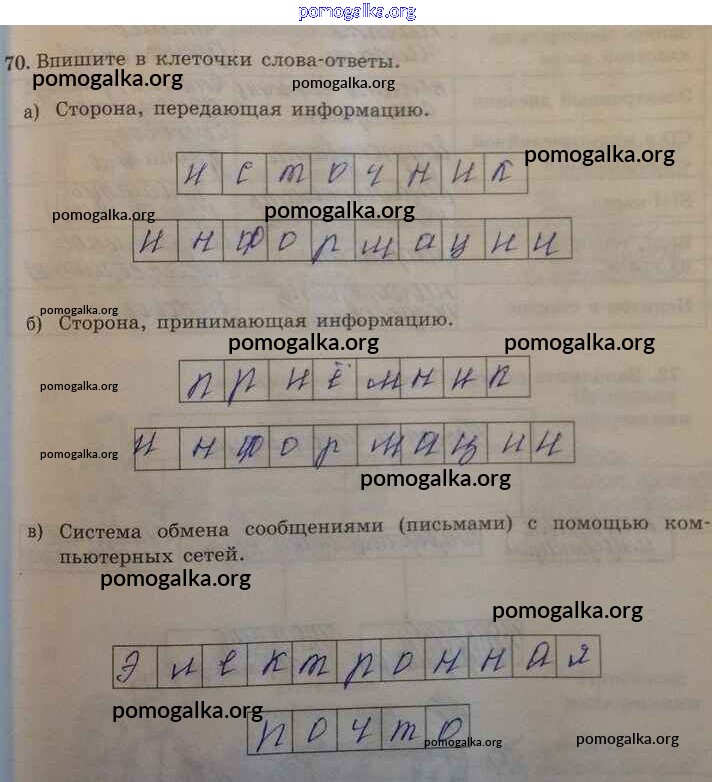 pomogalka.org
70. Впишите в клеточки слова-ответы.
pomogalka.org pomogalka.org
а) Сторона, передающая информацию.
pomogalka.org
источник
pomogalka.org pomogalka.org
информации
pomogalka.org
б) Сторона, принимающая информацию.
pomogalka.org pomogalka.org
приёмник
pomogalka.org
информации
pomogalka.org
pomogalka.org
в) Система обмена сообщениями (письмами) с помощью ком-
пьютерных сетей.
pomogalka.org
pomogalka.org
электронная
pomogalka.org
почто
pomogalka.org pomogalka.org